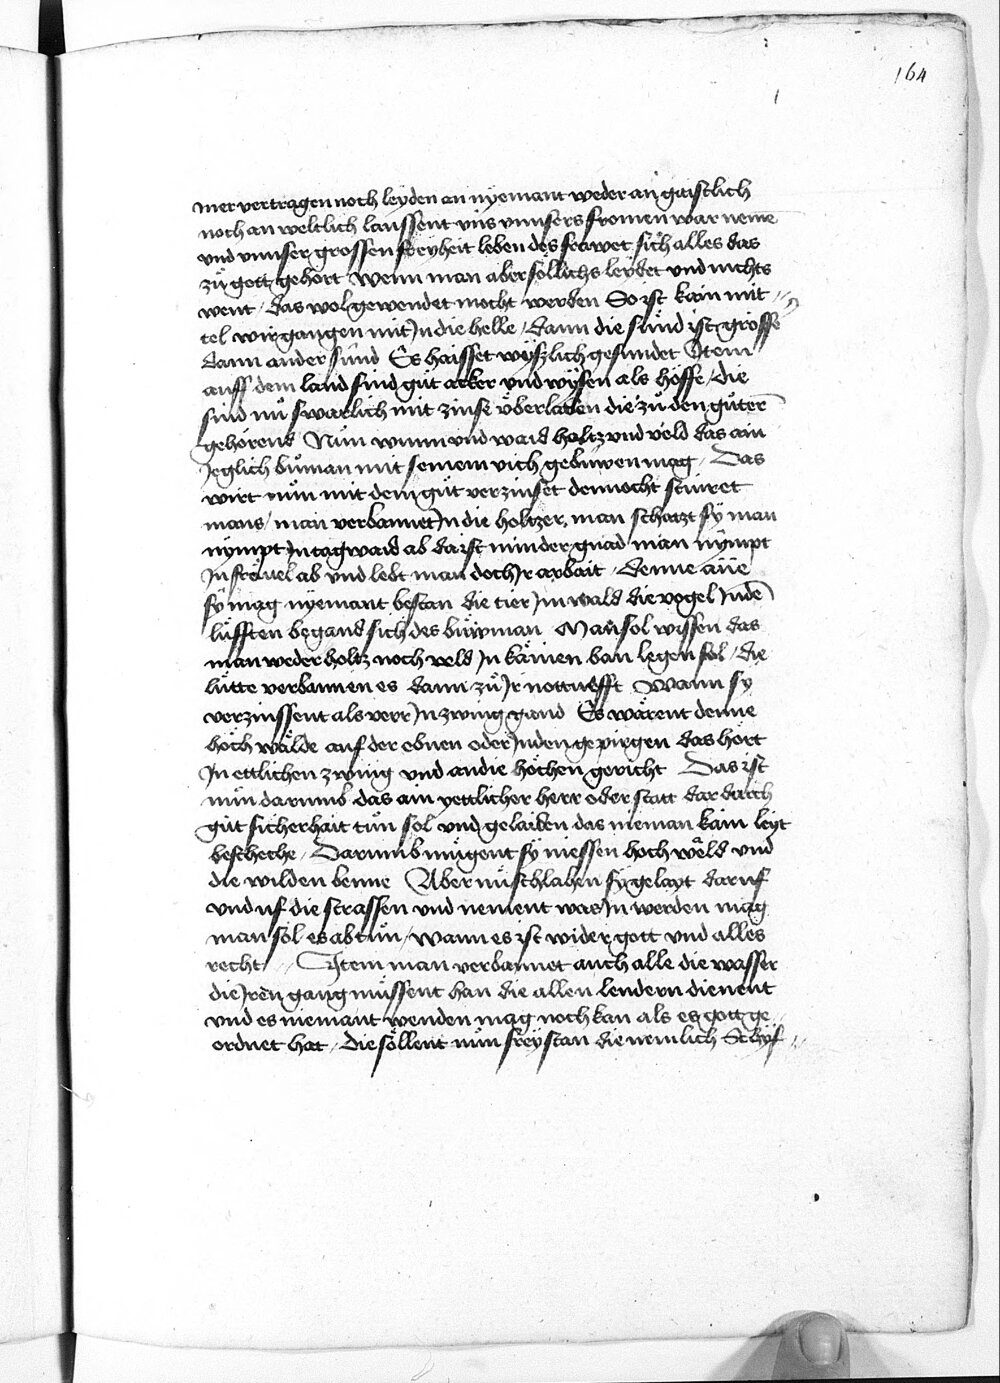 164
mer vertragen noch leyden an nyemant weder an gaistlich
noch an weltlich laussent uns unnsers fromen war neme
und unnser grossen freyheit leben des frawet sich alles das
zů gott gehört Wenn man aber söllichs leydet und nichts
went / das wol gewendet mocht werden So ist kain mit //
tel wir gangen mit Jn die helle / dann die sünd ist grösse
dann ander sünd Es haisset wyszlich gesündet Jtem
auff dem land sind gůt acker und wysen als höffe / die
sind nu swarlich mit zinse überladen die zů den gůter
gehörend Nun wunn und waid holtz und veld das ain
Jeglich buman mit seinem vich gebuwen mag / Das
wirt nun mit dem gůt verzinset dennocht sturet
mans / man verbannet Jn die höltzer, man schatzt sy man
nympt Jn tagwaid ab da ist minder gnad man nympt
Jn fräuel ab und lebt man doch Jr arbait / denne ane
sy mag nyemant bestan die tier Jm wald die vogel Jn de
lüfften begand sich des buwman Man sol wissen das
man weder holtz noch veld Jn kainen ban legen sol / die
lütte verbannen es dann zů Jr notturfft Wann sy
verzinssent als verr Jn zwing gand Es wärent denne
hoch wälde auf der ebnen oder Jn den gepirgen das hört
Jn ettlichen zwing und an die höchen gericht Das ist
nun darumb das ain yettlicher herr oder statt dar durch
gůt sicherhait tůn sol und gelaiten das nieman kain leyt
bescheche / Darumb mügent sy niessen hoch wäld und
die wilden benne Aber nu schlahen sy gelayt daruf
und uf die strassen und nement was Jn werden mag
man sol es ab tůn / wann es ist wider gott und alles
recht / Jtem man verbannet auch alle die wasser
die Jren gang müssent han die allen lendern dienent
und es niemant wenden mag noch kan als es gott ge
ordnet hat / Die söllent nun frey stan die nemlich Schyf //